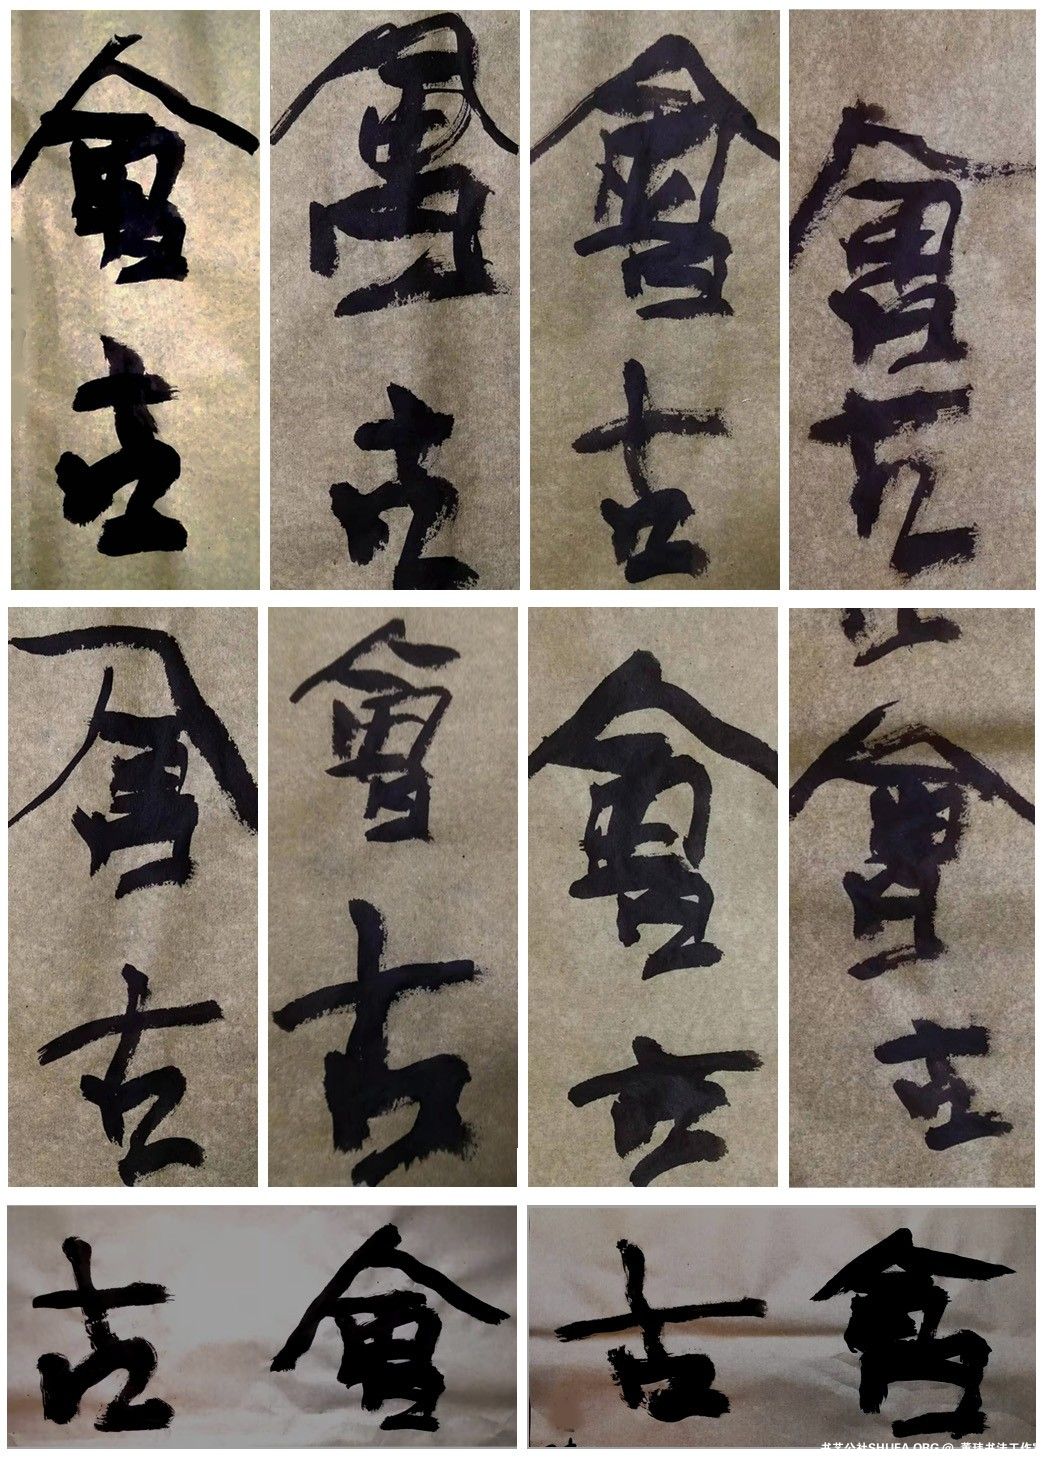 會古
會古
會古
會古
會古
會古
會古
會古
會古
會古
书艺公社SHUFA.ORG @